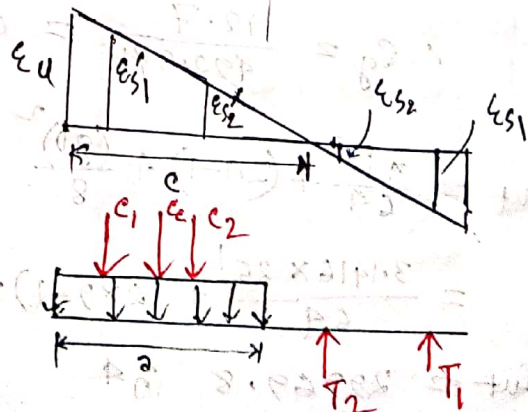 εu εs'1 εs'2 εs2 εs1
c
c1 cc c2
a
T2 T1